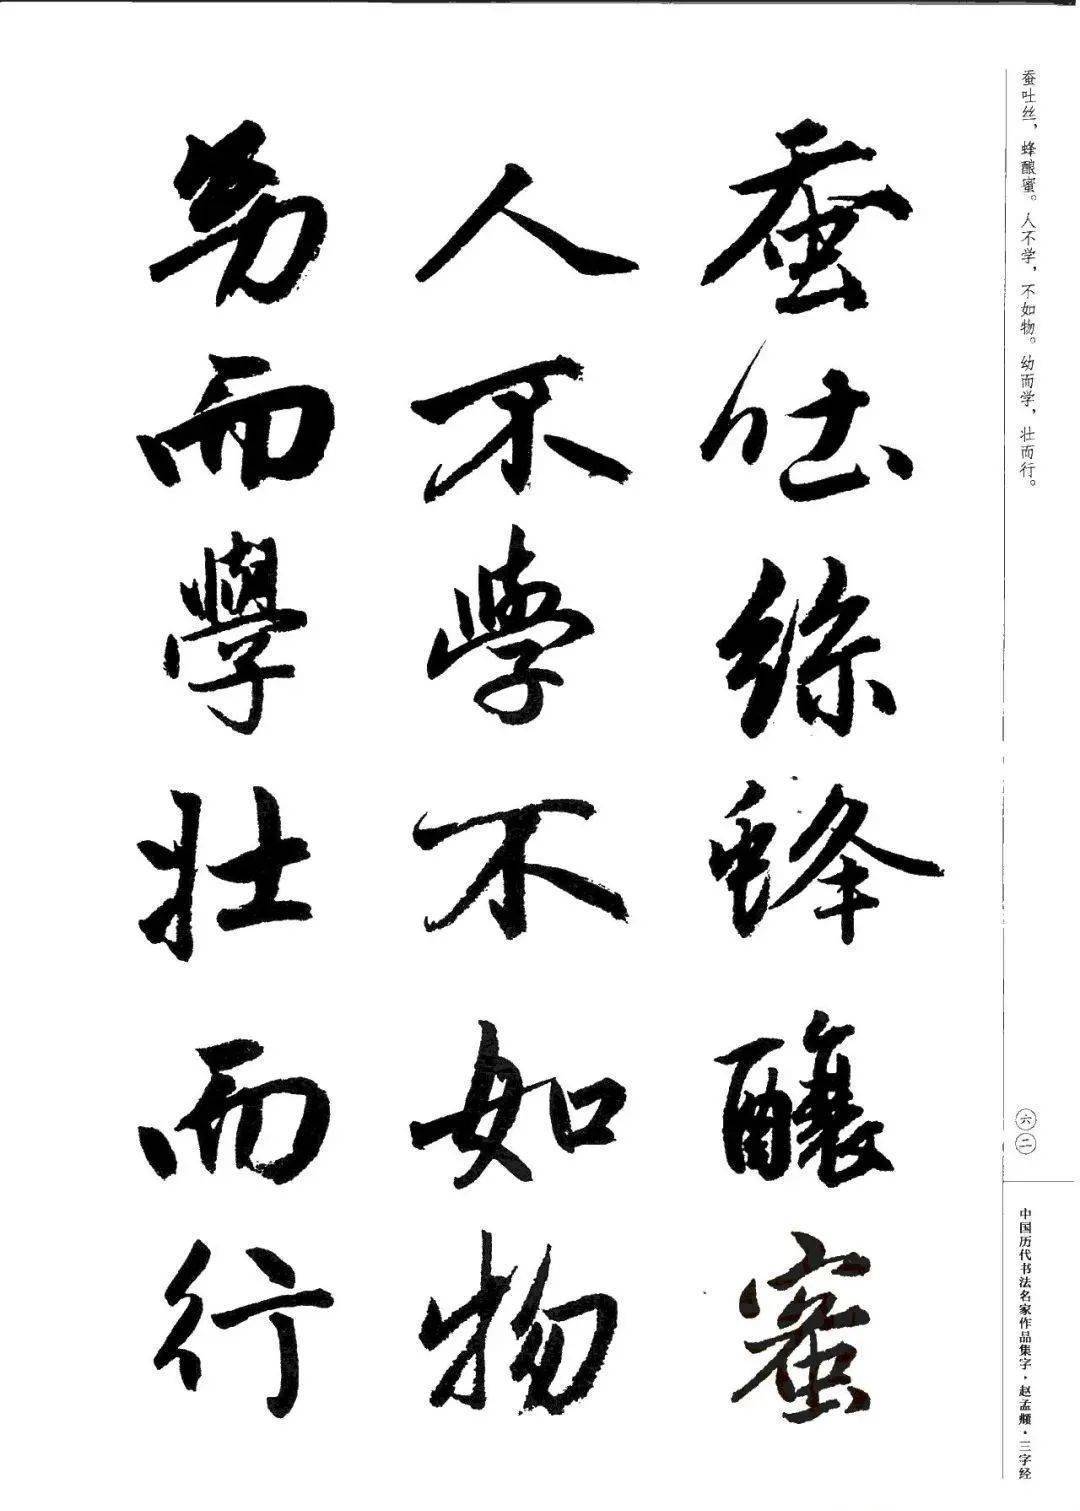 蚕吐丝，蜂酿蜜。人不学，不如物。幼而学，壮而行。
六二
中国历代书法名家作品集字·赵孟頫·三字经
蚕吐絲蜂釀蜜
人不學不如物
幼而學壯而行